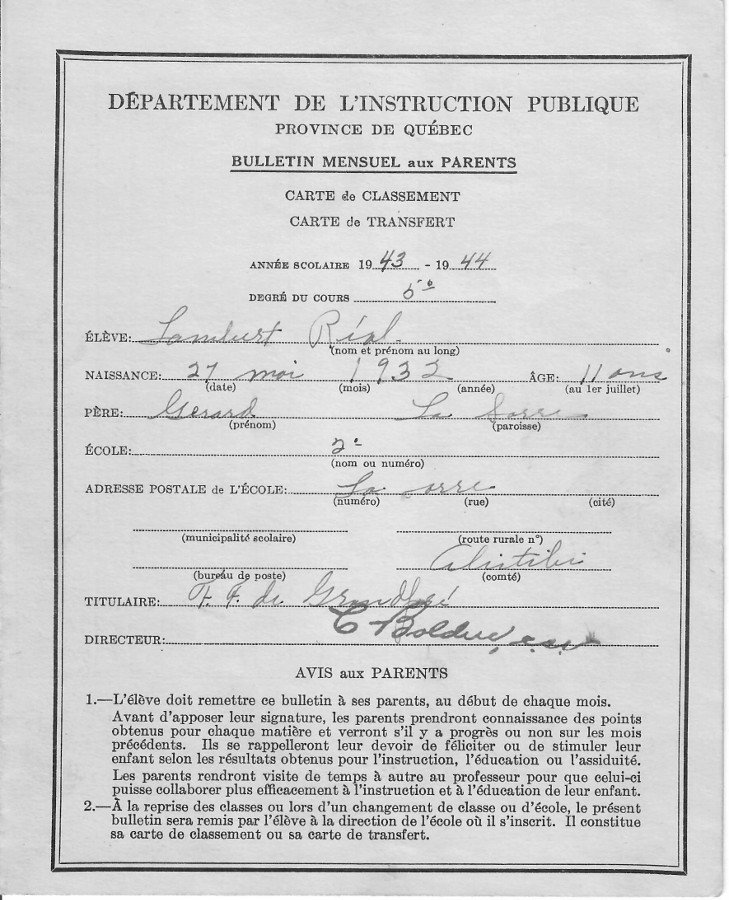 DÉPARTEMENT DE L'INSTRUCTION PUBLIQUE
PROVINCE DE QUÉBEC
BULLETIN MENSUEL aux PARENTS
CARTE de CLASSEMENT
CARTE de TRANSFERT
ANNÉE SCOLAIRE 1943 - 1944
DEGRÉ DU COURS 5e
ÉLÈVE: Lambert Réal
(nom et prénom au long)
NAISSANCE: 27 mai 1932 ÂGE: 11 ans
(date) (mois) (année) (au 1er juillet)
PÈRE: Gérard La Sarre
(prénom) (paroisse)
ÉCOLE: 2e
(nom ou numéro)
ADRESSE POSTALE de L'ÉCOLE: La Sarre
(numéro) (rue) (cité)
(municipalité scolaire) (route rurale n°)
Abitibi
(bureau de poste) (comté)
TITULAIRE: F. F. de
DIRECTEUR: C Bolduc
AVIS aux PARENTS
1.—L'élève doit remettre ce bulletin à ses parents, au début de chaque mois.
Avant d'apposer leur signature, les parents prendront connaissance des points
obtenus pour chaque matière et verront s'il y a progrès ou non sur les mois
précédents. Ils se rappelleront leur devoir de féliciter ou de stimuler leur
enfant selon les résultats obtenus pour l'instruction, l'éducation ou l'assiduité.
Les parents rendront visite de temps à autre au professeur pour que celui-ci
puisse collaborer plus efficacement à l'instruction et à l'éducation de leur enfant.
2.—À la reprise des classes ou lors d'un changement de classe ou d'école, le présent
bulletin sera remis par l'élève à la direction de l'école où il s'inscrit. Il constitue
sa carte de classement ou sa carte de transfert.